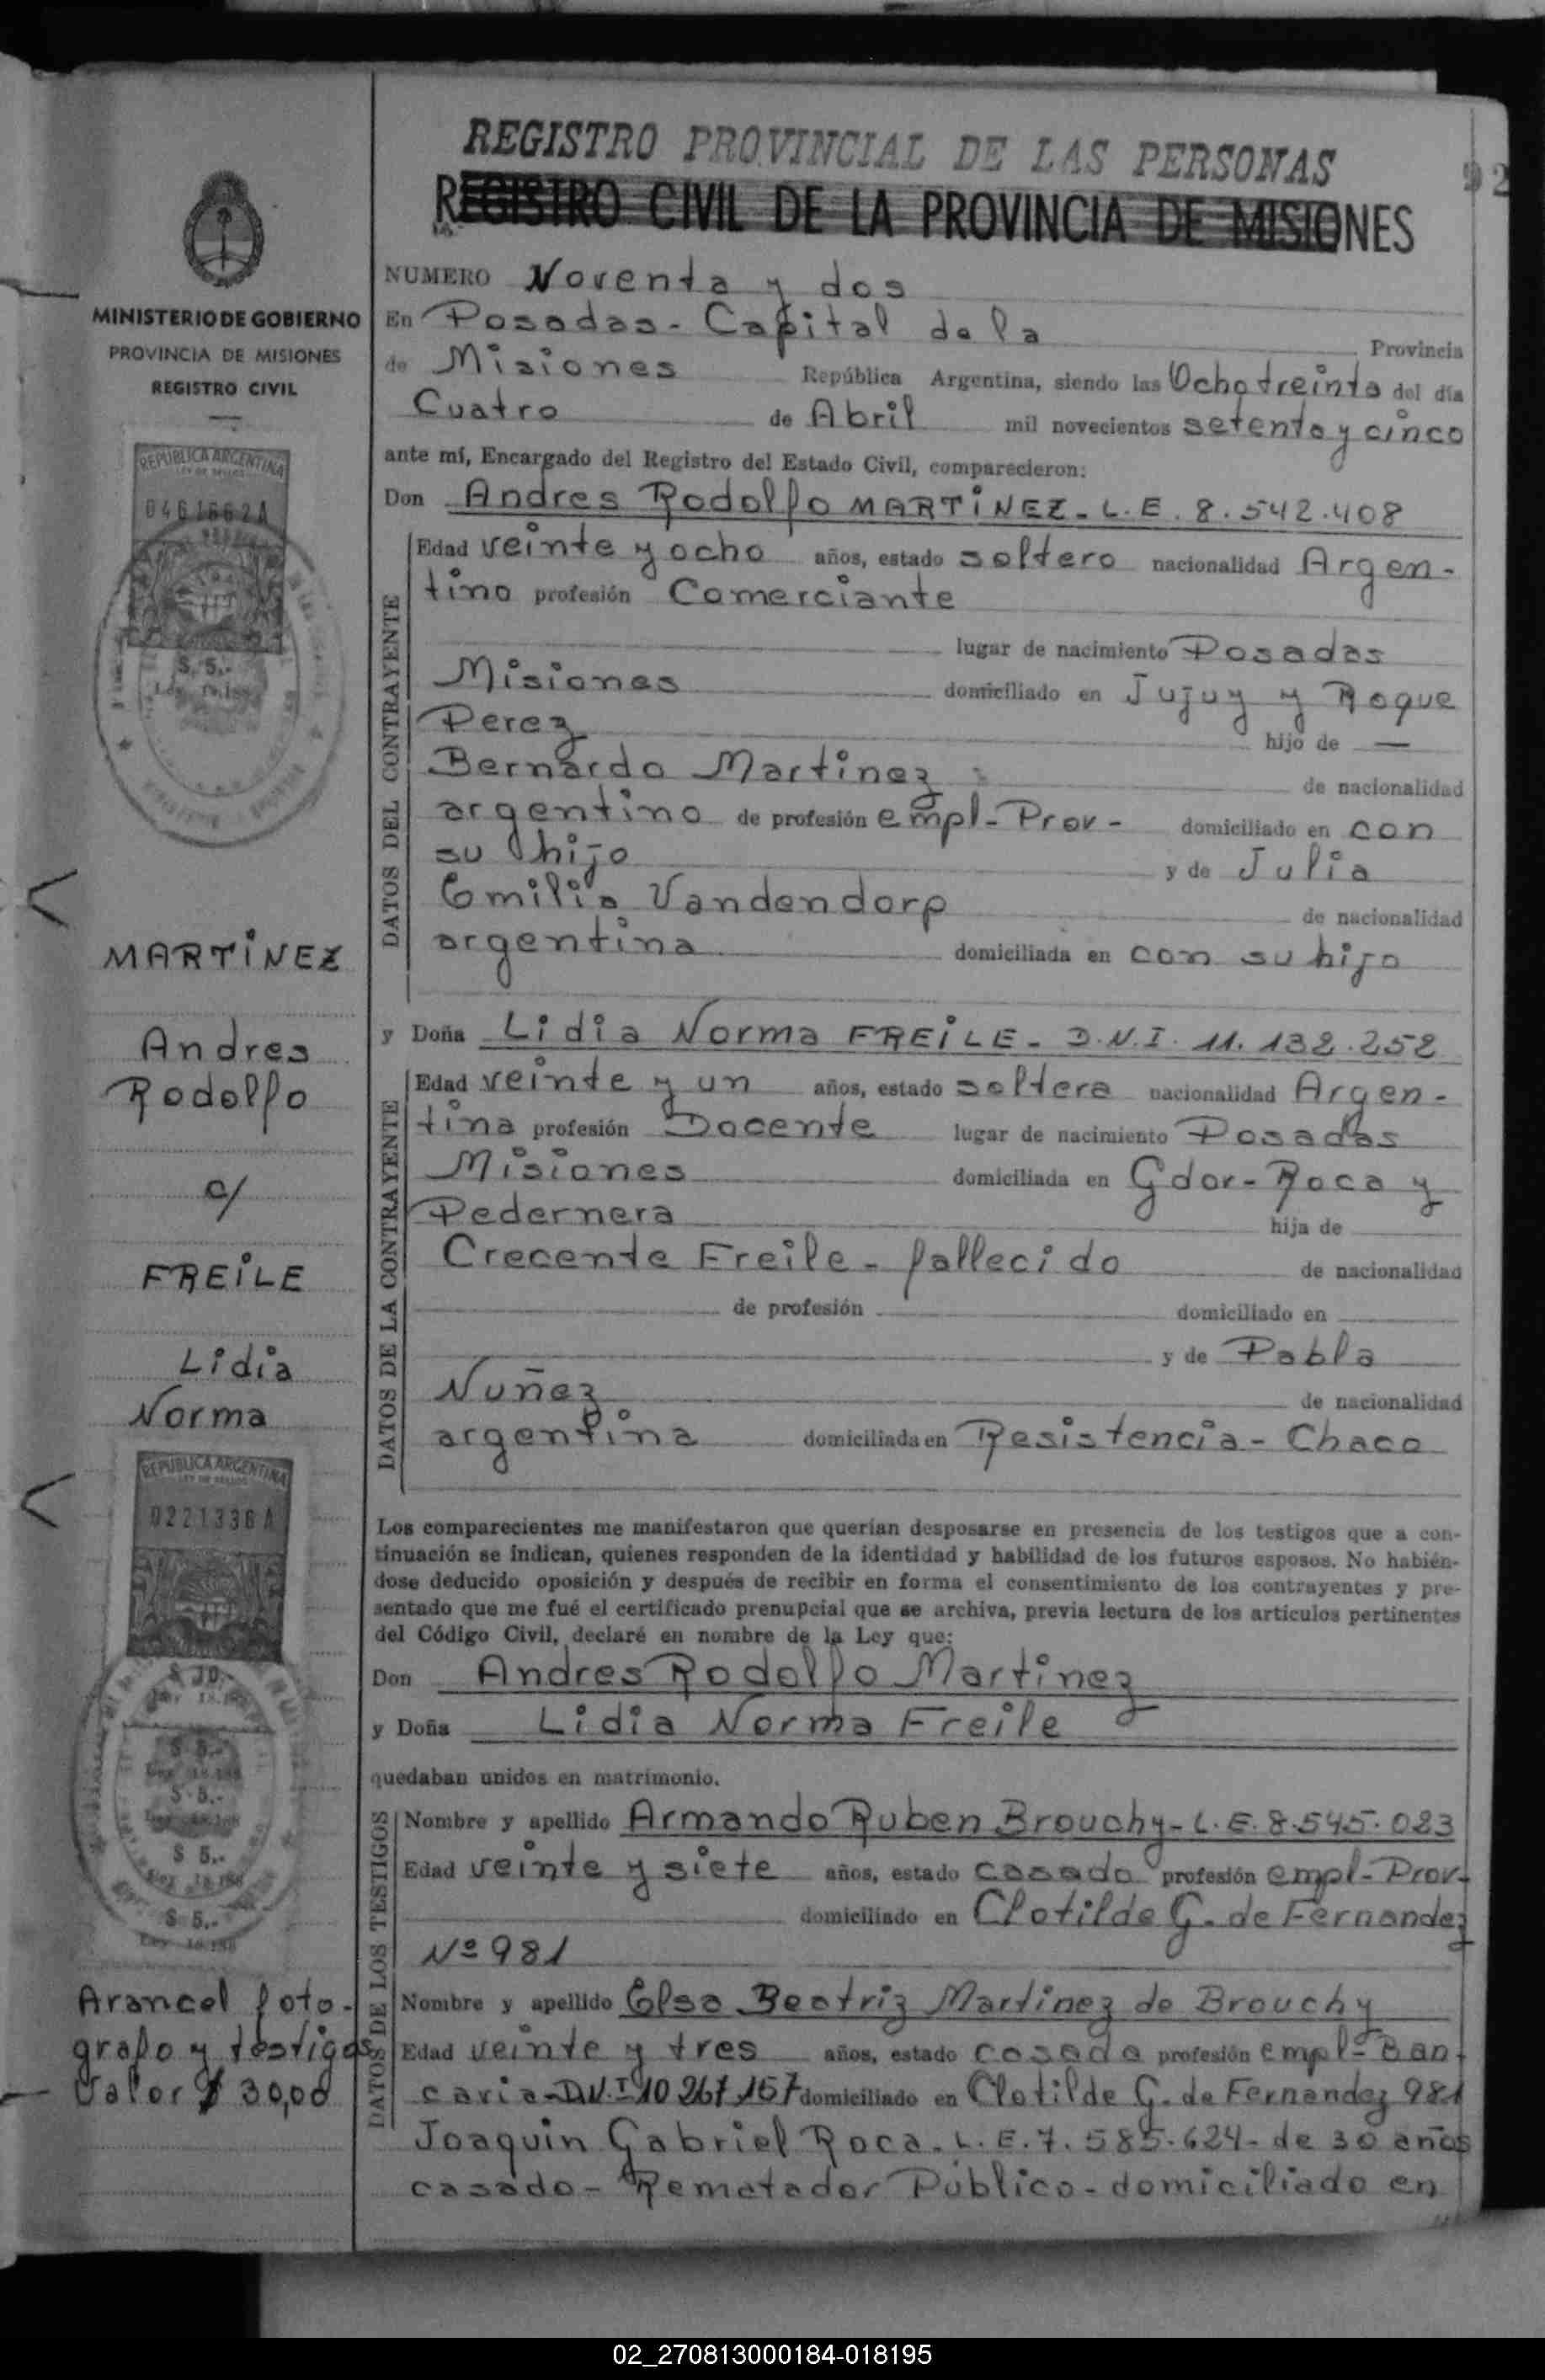 REGISTRO PROVINCIAL DE LAS PERSONAS
92
REGISTRO CIVIL DE LA PROVINCIA DE MISIONES
MINISTERIO DE GOBIERNO
PROVINCIA DE MISIONES
REGISTRO CIVIL
REPUBLICA ARGENTINA
LEY DE SELLOS
0461662A
$ 5.-
MARTINEZ
Andres
Rodolfo
c/
FREILE
Lidia
Norma
REPUBLICA ARGENTINA
LEY DE SELLOS
0221336 A
$ 10.-
$ 5.-
$ 5.-
$ 5.-
$ 5.-
Arancel foto-
grafo y testigos
Valor $ 30,00
NUMERO Noventa y dos
En Posadas - Capital de la Provincia
de Misiones República Argentina, siendo las Ocho treinta del día
Cuatro de Abril mil novecientos setenta y cinco
ante mí, Encargado del Registro del Estado Civil, comparecieron:
Don Andres Rodolfo MARTINEZ - L.E. 8.542.408
DATOS DEL CONTRAYENTE
Edad veinte y ocho años, estado soltero nacionalidad Argen-
tino profesión Comerciante
lugar de nacimiento Posadas
Misiones domiciliado en Jujuy y Roque
Perez hijo de —
Bernardo Martinez de nacionalidad
argentino de profesión empl - Prov - domiciliado en con
su hijo y de Julia
Emilia Vandendorp de nacionalidad
argentina domiciliada en con su hijo
y Doña Lidia Norma FREILE - D.N.I. 11.132.252
DATOS DE LA CONTRAYENTE
Edad veinte y un años, estado soltera nacionalidad Argen-
tina profesión Docente lugar de nacimiento Posadas
Misiones domiciliada en Gdor - Roca y
Pedernera hija de
Crecente Freile - fallecido de nacionalidad
de profesión domiciliado en
y de Pabla
Nuñez de nacionalidad
argentina domiciliada en Resistencia - Chaco
Los comparecientes me manifestaron que querían desposarse en presencia de los testigos que a con-
tinuación se indican, quienes responden de la identidad y habilidad de los futuros esposos. No habién-
dose deducido oposición y después de recibir en forma el consentimiento de los contrayentes y pre-
sentado que me fué el certificado prenupcial que se archiva, previa lectura de los artículos pertinentes
del Código Civil, declaré en nombre de la Ley que:
Don Andres Rodolfo Martinez
y Doña Lidia Norma Freile
quedaban unidos en matrimonio.
DATOS DE LOS TESTIGOS
Nombre y apellido Armando Ruben Brouchy - L.E. 8.545.023
Edad veinte y siete años, estado casado profesión empl - Prov -
domiciliado en Clotilde G. de Fernandez
Nº 981
Nombre y apellido Elsa Beatriz Martinez de Brouchy
Edad veinte y tres años, estado casada profesión empl - Ban-
caria - D.N.I 10 267 157 domiciliado en Clotilde G. de Fernandez 981
Joaquin Gabriel Roca - L.E. 7.585.624 - de 30 años
casado - Rematador Público - domiciliado en
02_270813000184-018195